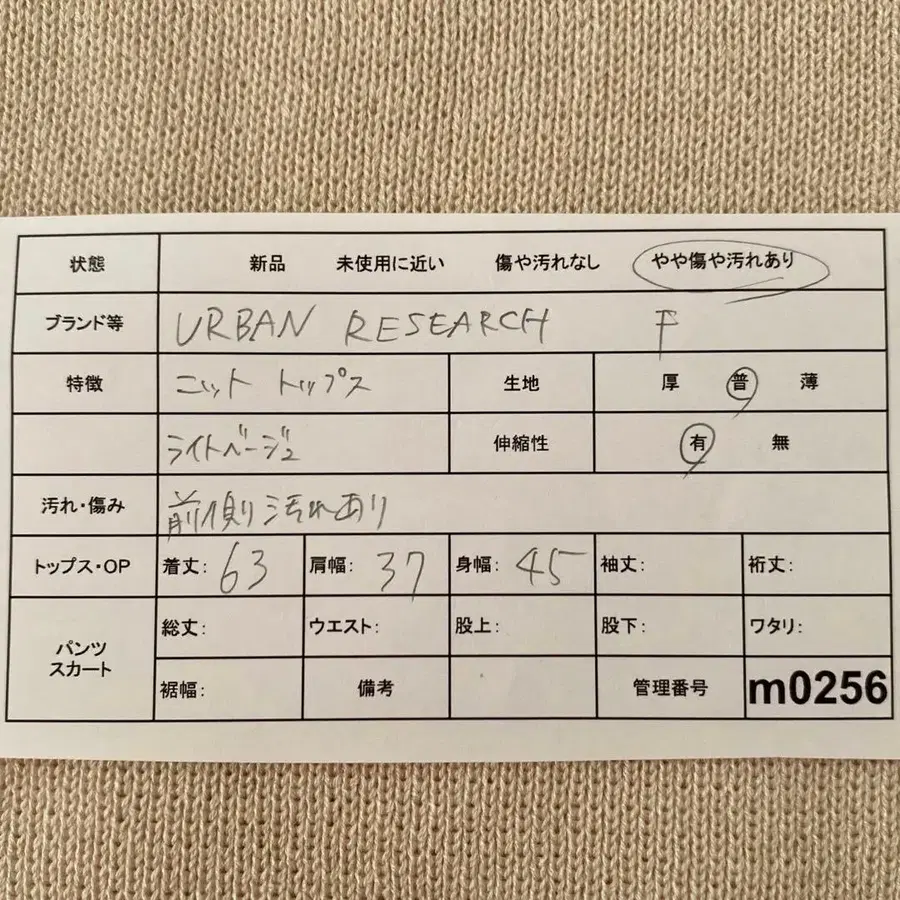 状態 新品 未使用に近い 傷や汚れなし やや傷や汚れあり
ブランド等 URBAN RESEARCH F
特徴 ニット トップス 生地 厚 普 薄
ライトベージュ 伸縮性 有 無
汚れ・傷み 前側汚れあり
トップス・OP 着丈: 63 肩幅: 37 身幅: 45 袖丈: 裄丈:
パンツ スカート 総丈: ウエスト: 股上: 股下: ワタリ:
裾幅: 備考 管理番号 m0256